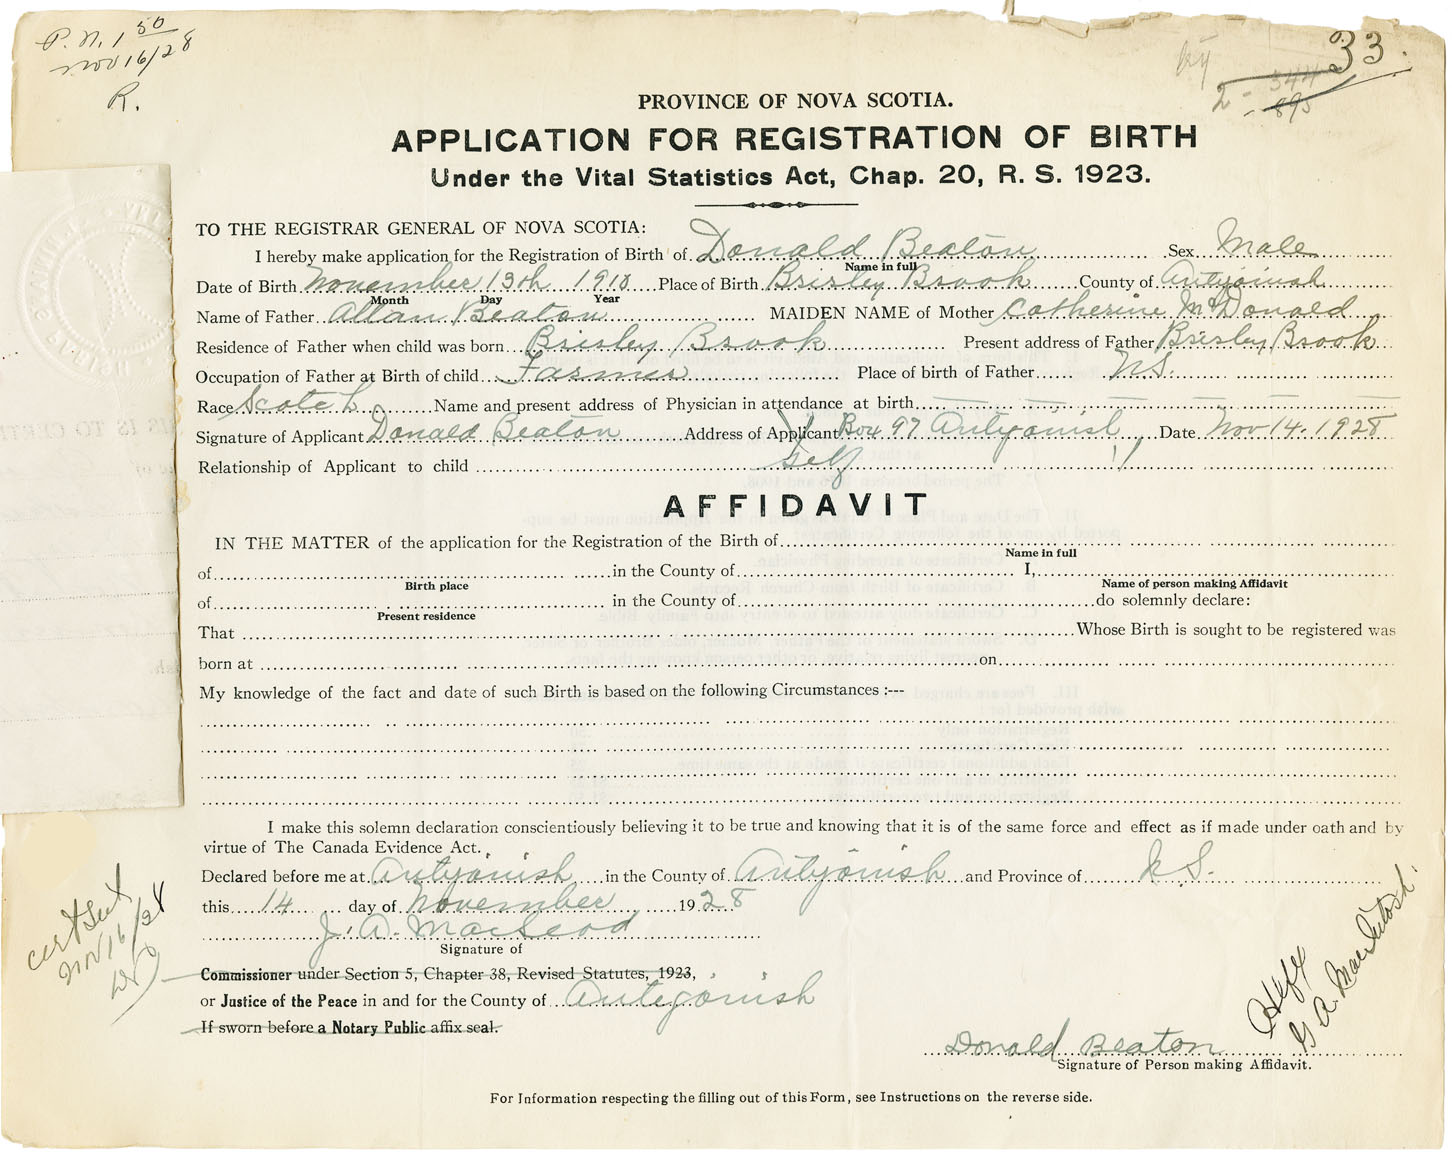 P. N. 1 50
Nov 16/28
R.
33.
2 = 344
= 895
PROVINCE OF NOVA SCOTIA.
APPLICATION FOR REGISTRATION OF BIRTH
Under the Vital Statistics Act, Chap. 20, R. S. 1923.
TO THE REGISTRAR GENERAL OF NOVA SCOTIA:
I hereby make application for the Registration of Birth of Donald Beaton Sex Male
Name in full
Date of Birth November 13th 1910 Place of Birth Brisley Brook County of Antigonish
Month Day Year
Name of Father Allan Beaton MAIDEN NAME of Mother Catherine McDonald
Residence of Father when child was born Brisley Brook Present address of Father Brisley Brook
Occupation of Father at Birth of child Farmer Place of birth of Father N.S.
Race Scotch Name and present address of Physician in attendance at birth
Signature of Applicant Donald Beaton Address of Applicant Box 97 Antigonish Date Nov 14. 1928
Relationship of Applicant to child self
AFFIDAVIT
IN THE MATTER of the application for the Registration of the Birth of
Name in full
of in the County of I,
Birth place Name of person making Affidavit
of in the County of do solemnly declare:
Present residence
That Whose Birth is sought to be registered was
born at on
My knowledge of the fact and date of such Birth is based on the following Circumstances :---
I make this solemn declaration conscientiously believing it to be true and knowing that it is of the same force and effect as if made under oath and by
virtue of The Canada Evidence Act.
Declared before me at Antigonish in the County of Antigonish and Province of N.S.
this 14 day of November 1928
J. A. MacLeod
Signature of
Commissioner under Section 5, Chapter 38, Revised Statutes, 1923,
or Justice of the Peace in and for the County of Antigonish
If sworn before a Notary Public affix seal.
Cert sent
Nov 16/28
Donald Beaton
Signature of Person making Affidavit.
G A. MacIntosh.
For Information respecting the filling out of this Form, see Instructions on the reverse side.